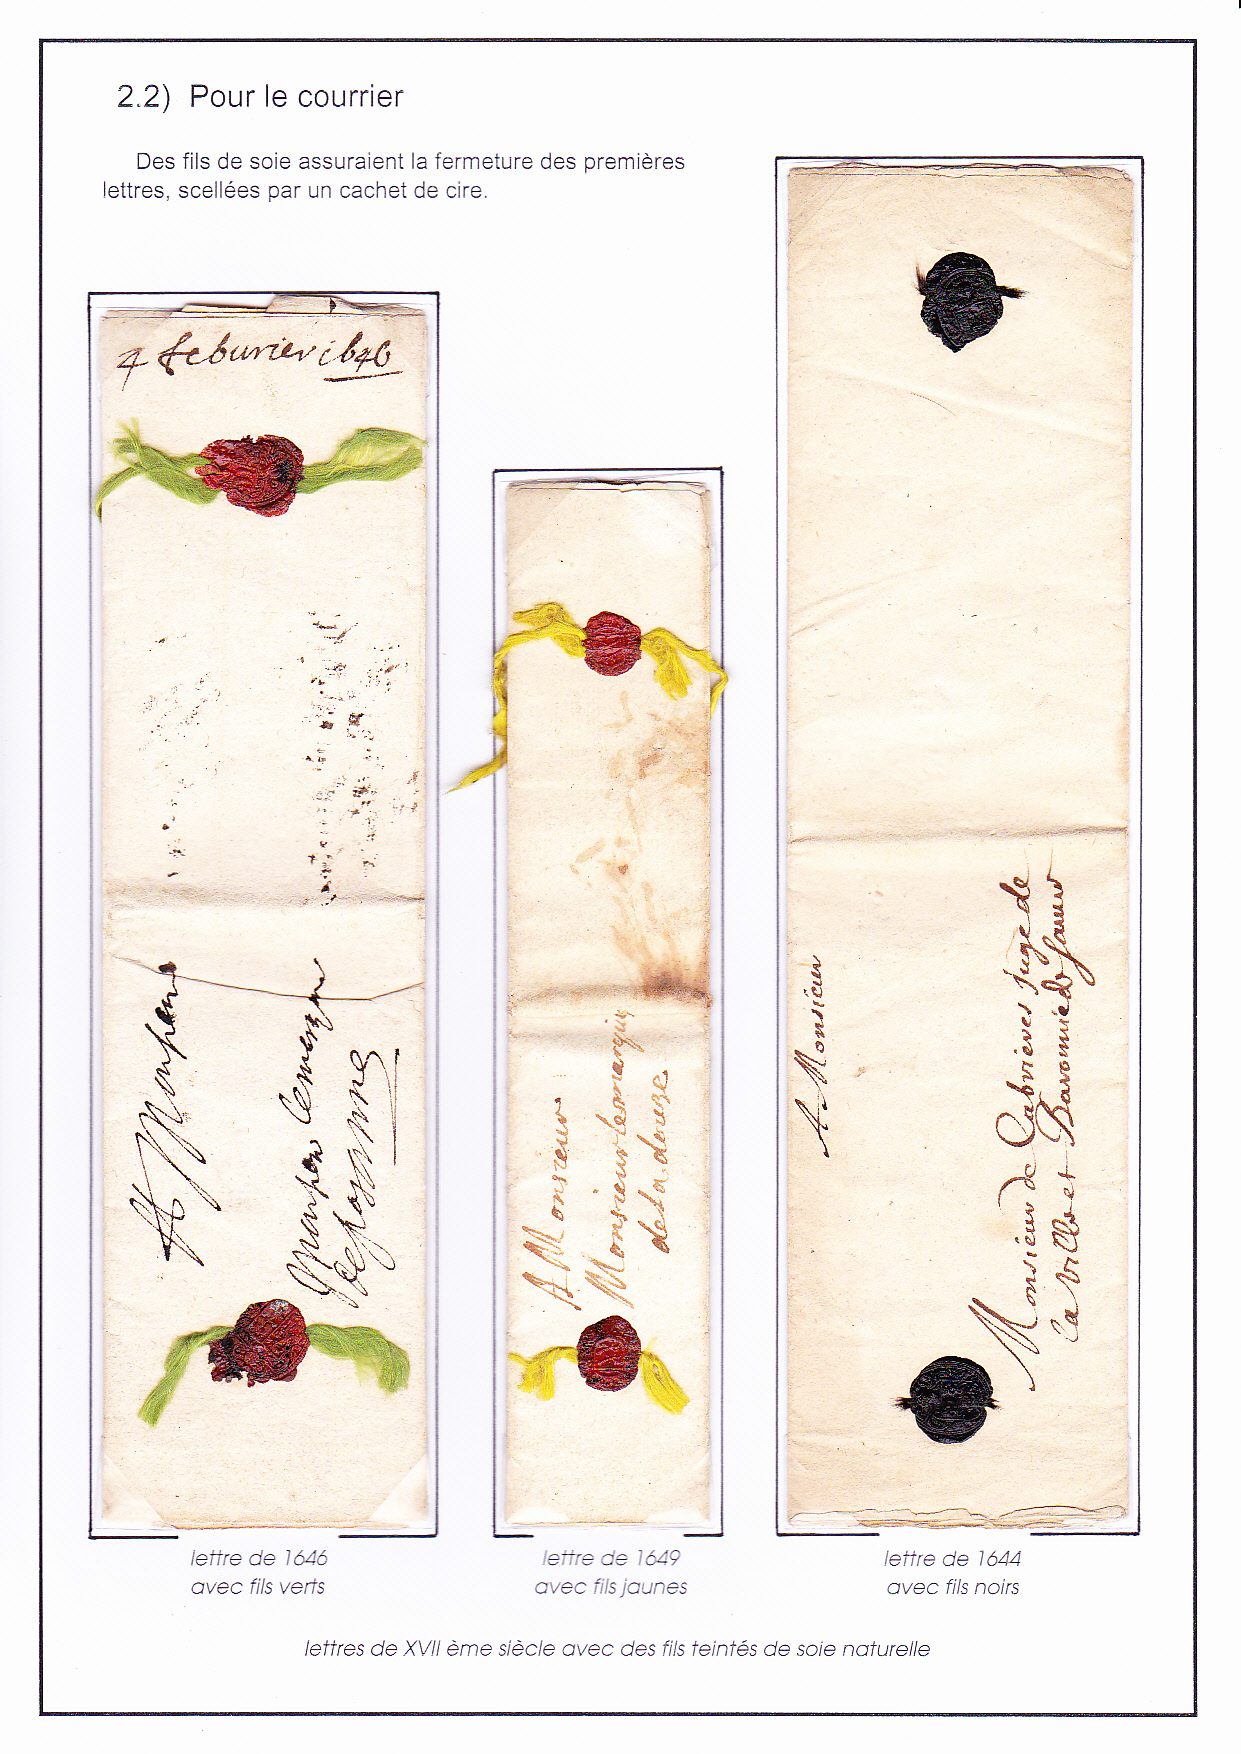 2.2) Pour le courrier
Des fils de soie assuraient la fermeture des premières
lettres, scellées par un cachet de cire.
4 feburier 1646
A Monsieur
Monsieur de Cabrieres juge de
la ville et Baronnie de
A Monsieur
Monsieur le marquis
A
lettre de 1646
avec fils verts
lettre de 1649
avec fils jaunes
lettre de 1644
avec fils noirs
lettres de XVII ème siècle avec des fils teintés de soie naturelle